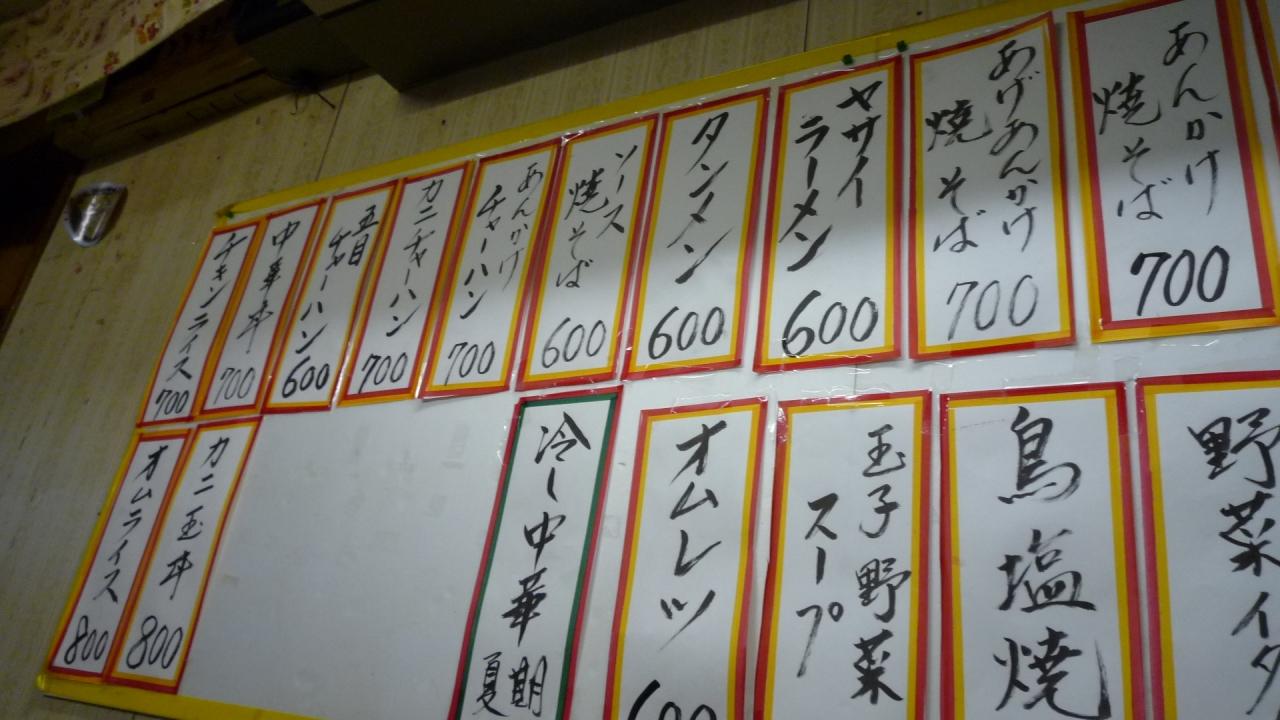 あんかけ
焼そば
700
あげあんかけ
焼そば
700
ヤサイ
ラーメン
600
タンメン
600
ソース
焼そば
600
あんかけ
チャーハン
700
カニチャーハン
700
五目
チャーハン
600
中華丼
700
チキンライス
700
野菜イタ
鳥塩焼
玉子野菜
スープ
オムレツ
600
冷し中華
夏期
カニ玉丼
800
オムライス
800